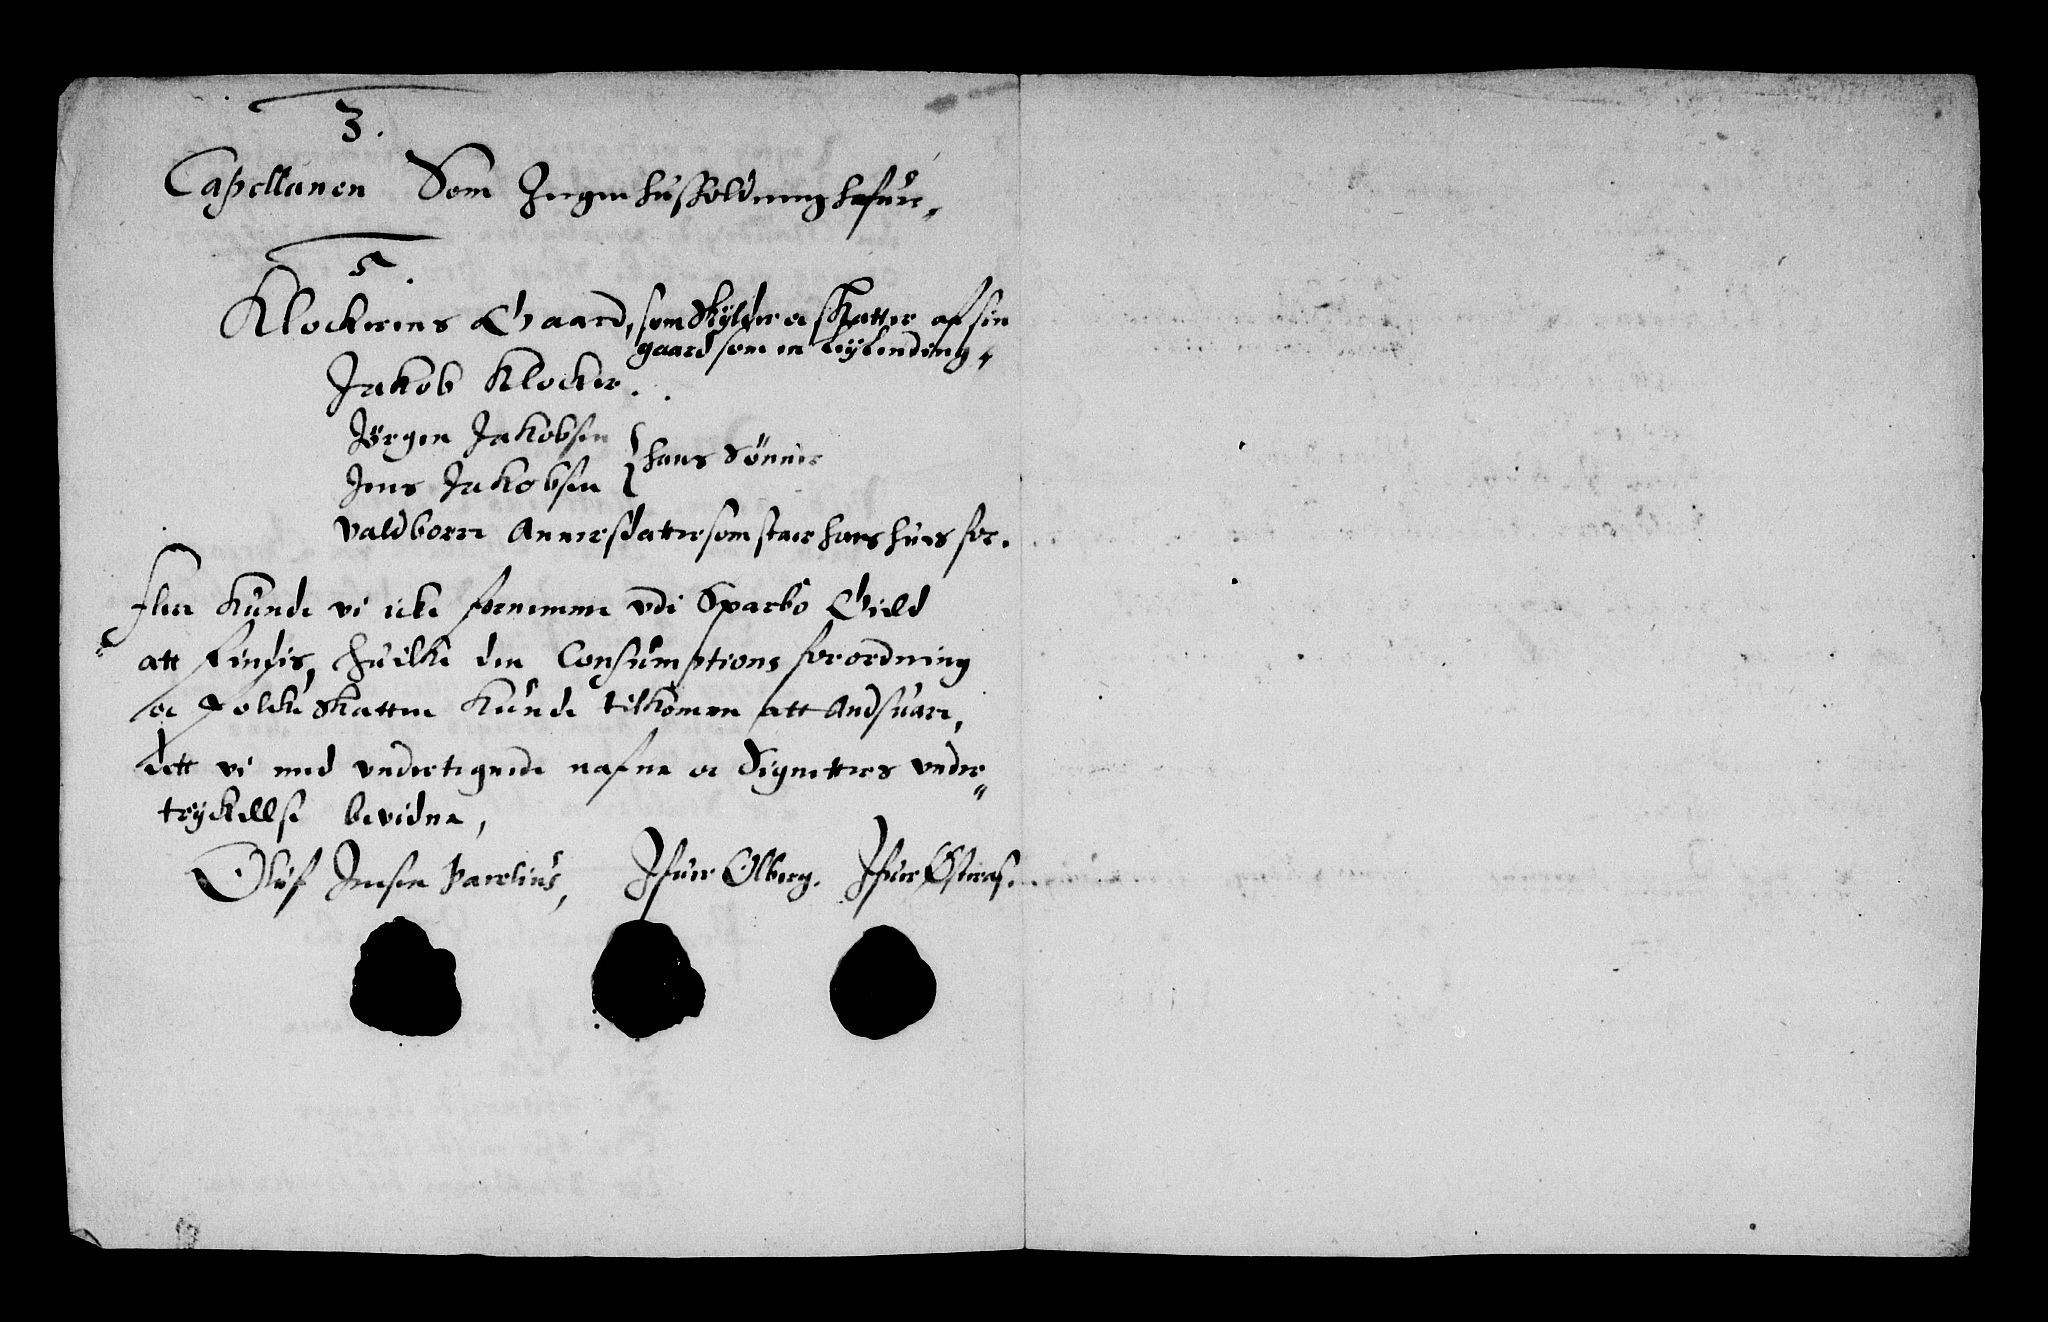 3.
Capellanen Som Ingen husholdning hafuer,
5.
Klockerens Gaard, som skylder oc skatter af sin
gaard som en leylending,
Jakob Klocker.
Jørgen Jakobsen
Jens Jakobsen } hans Sønner
Valdborre Annersdatter som staer hans hues for.
Flere kunde vi icke fornemme udi Sparbo Gield
att findis, huilke den Consumptions forordning
oc Folcke Skatten kunde tilkomme att Andsuare,
dett vi med undertegnede nafne oc Signetters under=
tryckellse bevidne,
Oluf Jensen Parelius, Ifuer Olberg. Ifuer Østeraas.